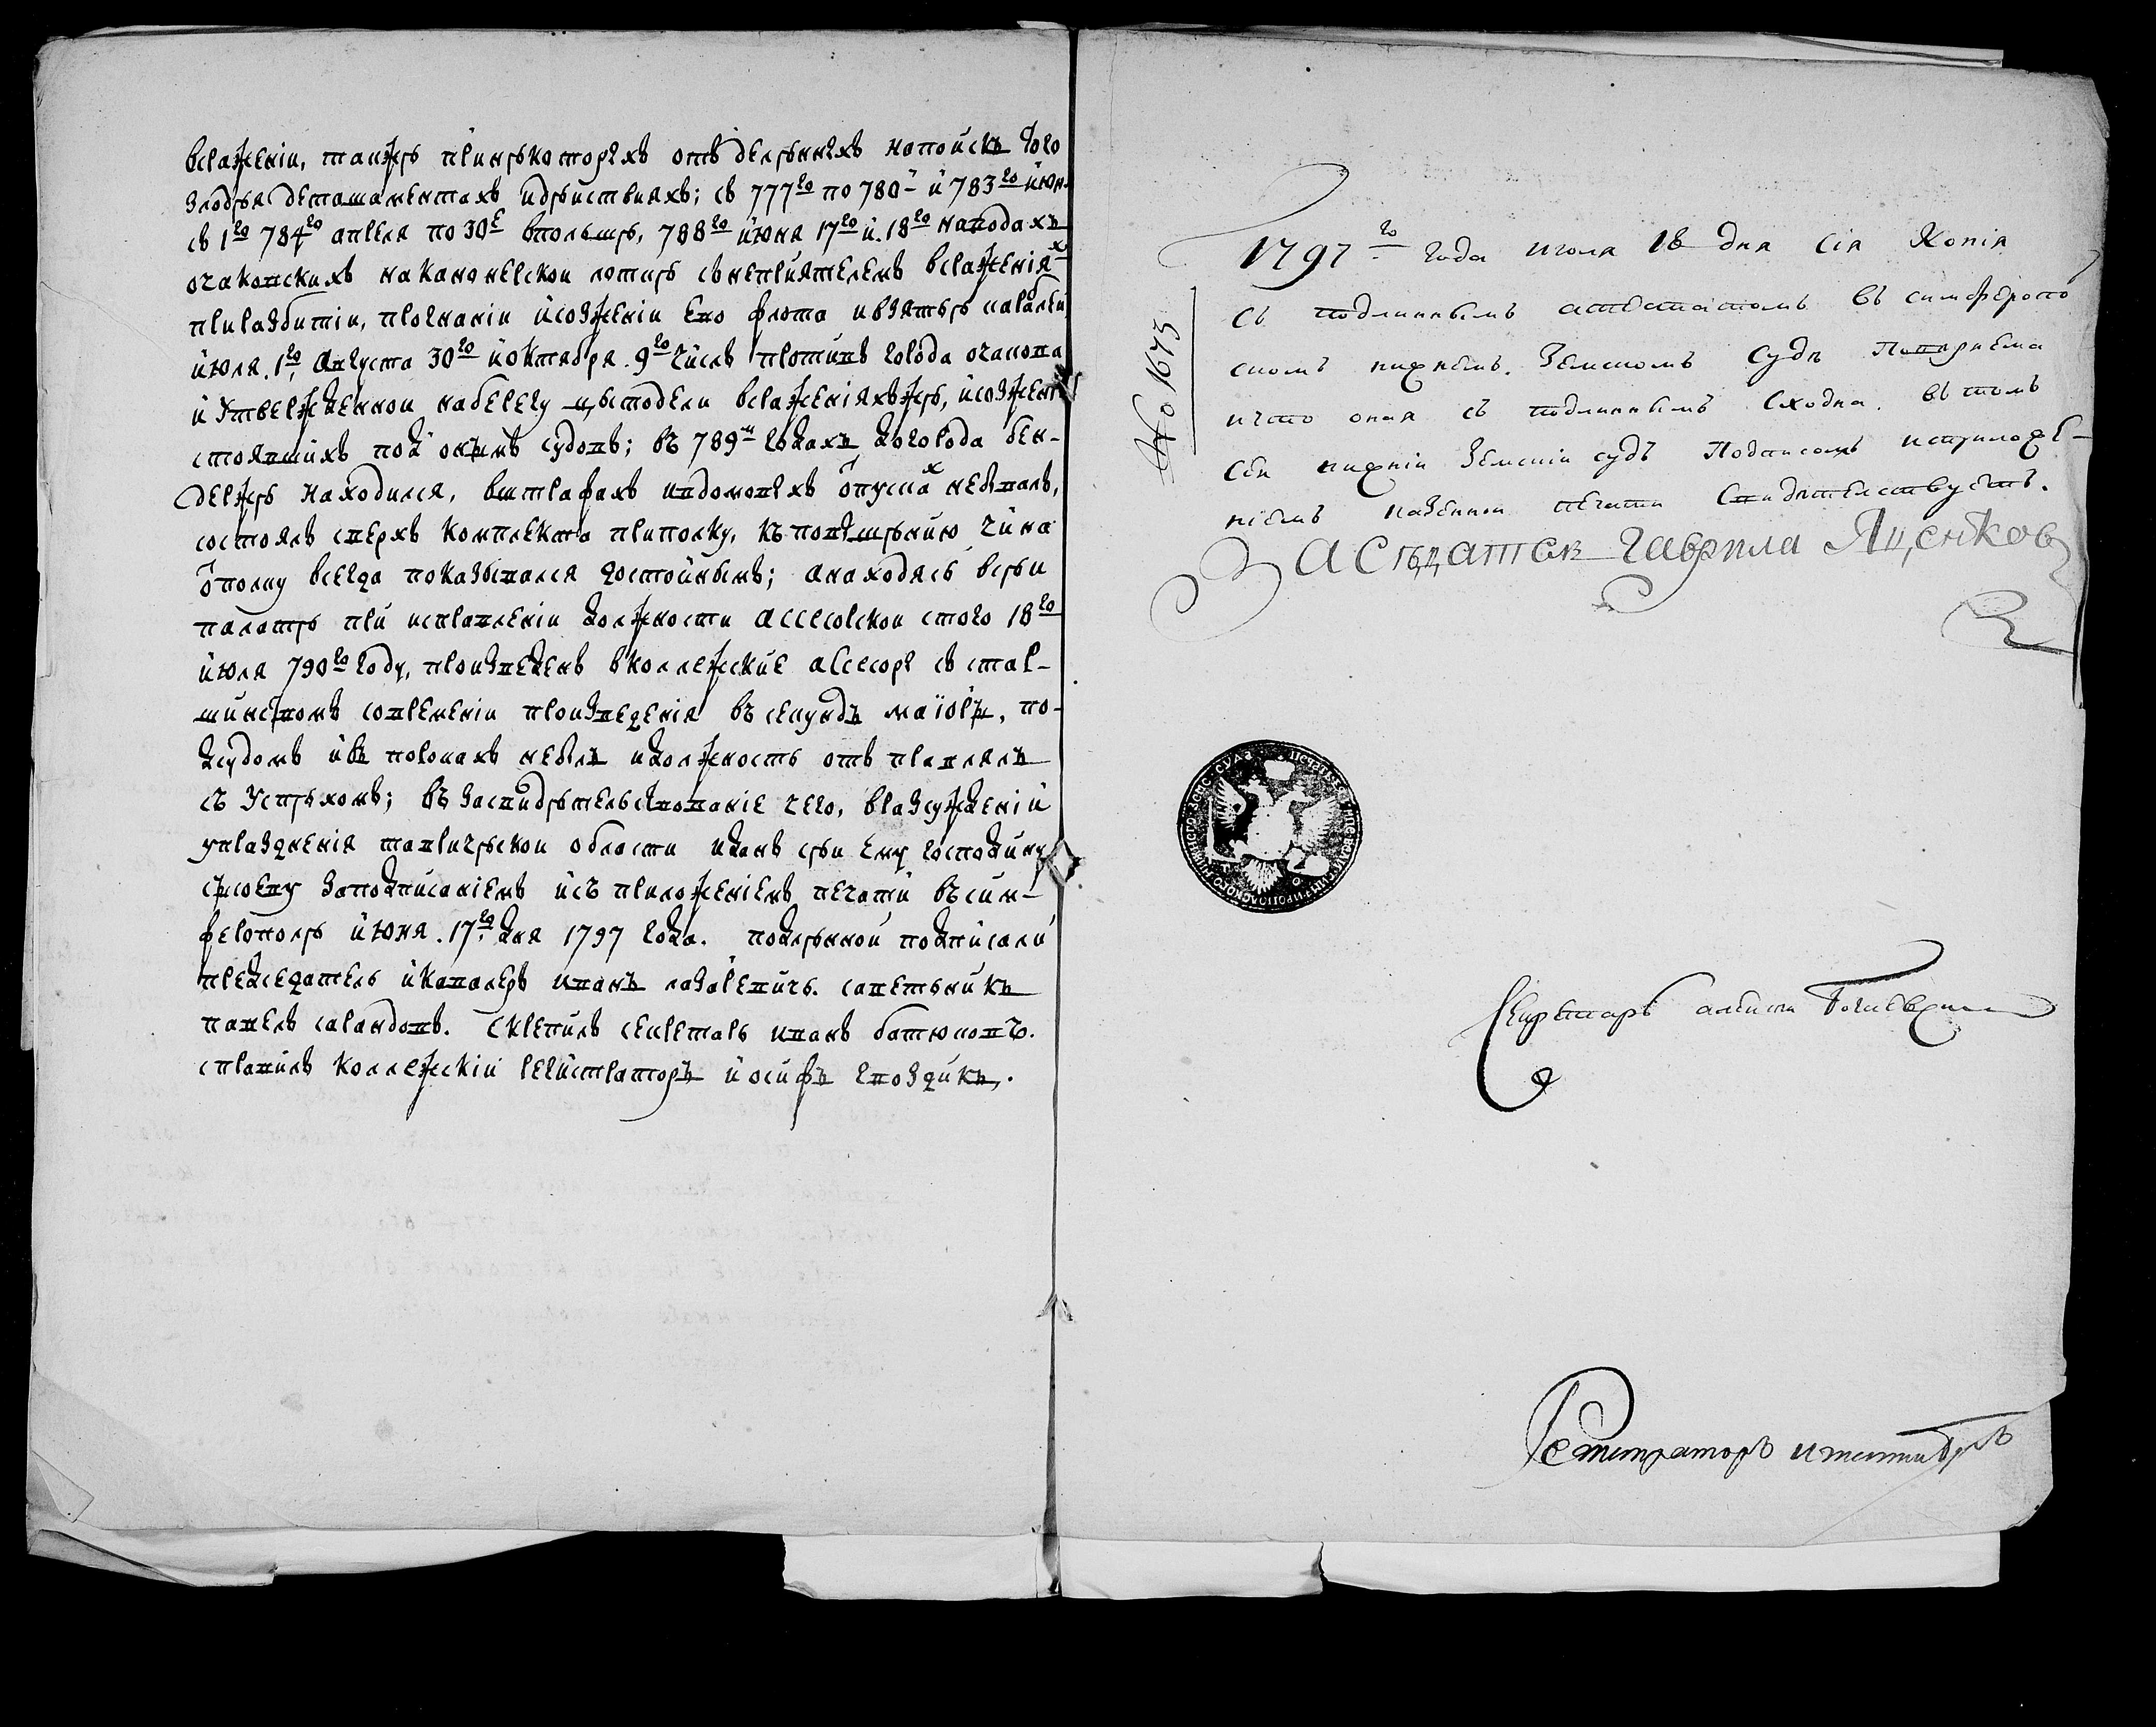 всраженіи, такъжепринѣкоторыхъ отъ деленныхъ напоискъ того
злодѣя деташаментахъ идѣйствияхъ; съ 777го по 780й и 783го июня
съ 1го 784го апреля по 30е впольшѣ, 788го июня 17го и 18го наводахъ
очаковскихъ наканонерской лоткѣ снеприятелемъ всраженіяхъ
приразбитіи, прогнаніи исозженіи его флота ивзятьѣ караблей
июля 1го, августа 30го иоктября 9го чиселъ противъ города очакова
иутвержденной наберегу цытодели всраженіяхъже, исозженіи
стоявшихъ подъ онымъ судовъ; въ 789м годахъ, догорода бен-
деръже находился, вштрафахъ ивдомовыхъ отпускахъ небывалъ,
состоялъ сверхъ комплекта приполку, къповышѣнию чина
отполку всегда показывался достойнымъ; анаходясь всѣй
палатѣ при исправленіи должности ассесорской стого 18го
июля 790го году, произведенъ вколлежские асесоры съ стар-
шинствомъ современи произведенія въ секундъ маіоры, по-
дсудомъ ивъ порокахъ небылъ идолжность отъ правлялъ
съ успѣхомъ; въ засвидѣтельствование чего, вразсужденіи
упразднения таврической области иданъ сѣй ему господину
заподписаніемъ исъ приложеніемъ печати въ сим-
ферополѣ июня 17го дня 1797 года. подлѣнной подписали
председатель икавалеръ иванъ лазаревичь. советьникъ
павелъ сарандовъ. скрепилъ секретарь иванъ батюковъ.
справилъ коллежскій регистраторъ иосифъ гвоздикъ.
1797го года июля 18 дня сія копія
съ подлиннымъ атестатомъ въ симферопо
скомъ нижнемъ земскомъ суде поверяема
ичто оная съ подлиннымъ сходна. въ томъ
сей нижній земскій судъ подписомъ исприложе-
ніемъ казенной печати свидетелствуетъ.
No 1673
Заседатель гаврила Яценков
Секретарь
Регистраторъ